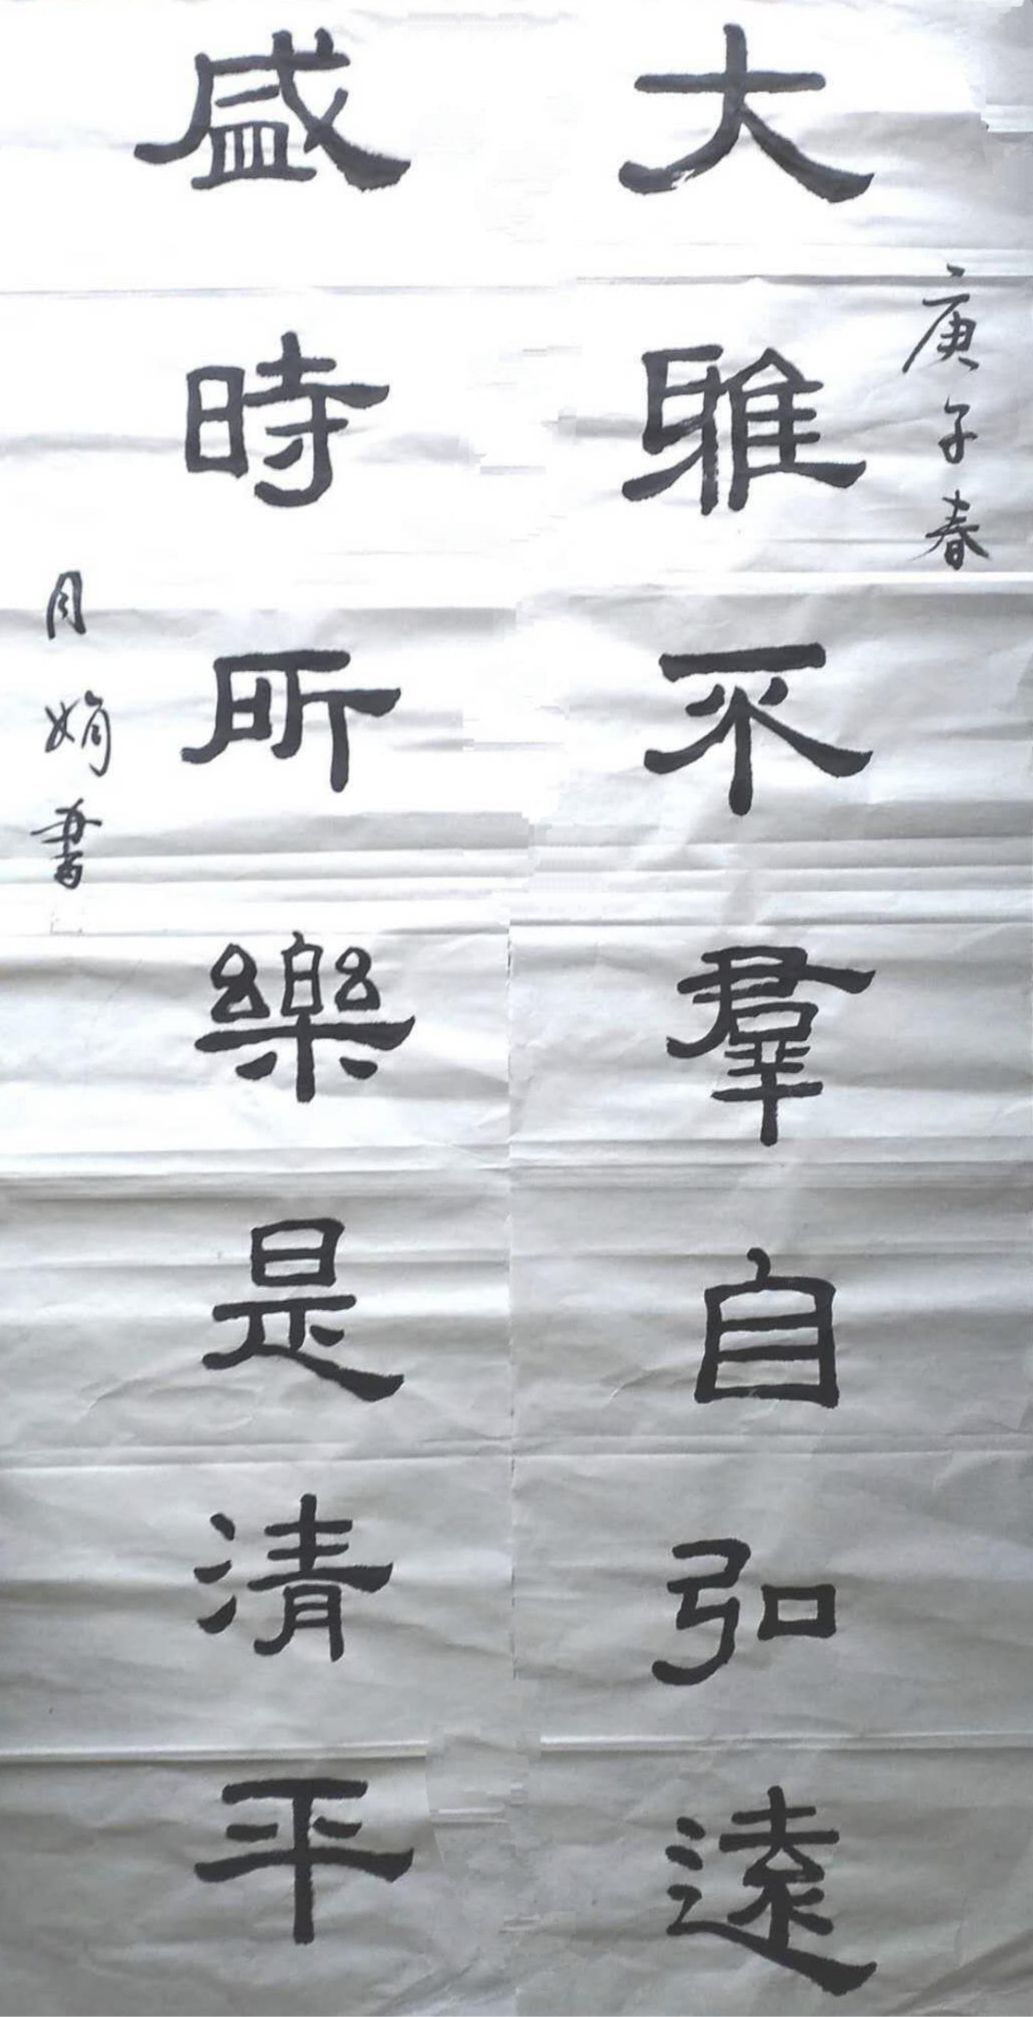 庚子春
大雅不羣自弘遠
盛時所樂是清平
月娟書